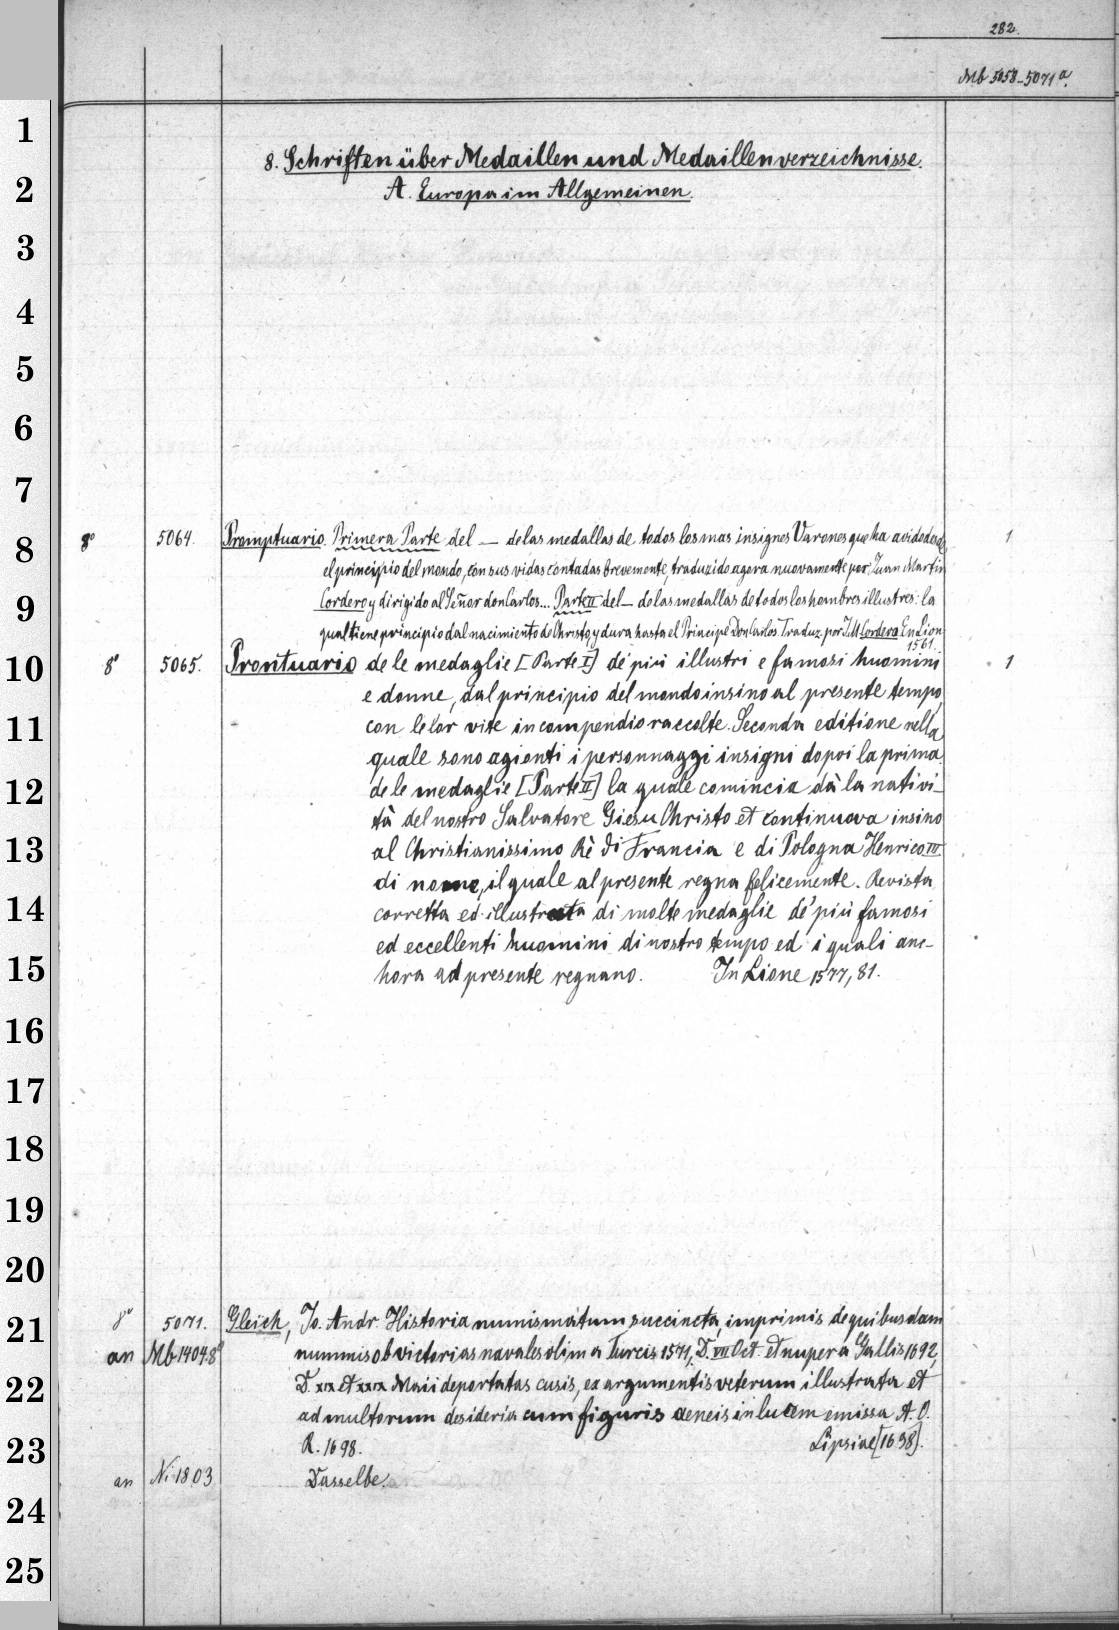 282.
Mb 5058-5071a.
8. Schriften über Medaillen und Medaillenverzeichnisse.
A. Europa im Allgemeinen.
8° 5064. Promptuario. Primera Parte del — de las medallas de todos los mas insignes Varones que ha avido desde 1
el principio del mondo, con sus vidas contadas brevemente, traduzido agora nuovamente por Juan Martin
Cordero y dirigido al Señor don Carlos... Parte II del — de las medallas de todos los hombres illustres: la
qual tiene principio dal nacimiento de Christo, y dura hasta el Principe Don Carlos. Traduz. por J. M. Cordero. En Lion
1561.
8° 5065. Prontuario de le medaglie [Parte I] de' più illustri e famosi huomini 1
e donne, dal principio del mondo insino al presente tempo,
con le lor vite in compendio raccolte. Seconda editione nella
quale sono agionti i personnaggi insigni dopoi la prima.
de le medaglie [Parte II] la quale comincia dà la nativi-
tà del nostro Salvatore Giesu Christo et continuova insino
al Christianissimo Rè di Francia e di Pologna Henrico III
di nome, il quale al presente regna felicemente. Revista
corretta ed illustrata di molte medaglie de' più famosi
ed eccellenti huomini di nostro tempo ed i quali anc-
hora ad presente regnano. In Lione 1577, 81.
8° 5071. Gleich, Jo. Andr. Historia numismatum succincta, imprimis de quibusdam
an Mb 1404.8° nummis ob victorias navales olim a Turcis 1571, D. VII Oct. et nuper a Gallis 1692,
D. XIX et XXIX Maii deportatas cusis, ex argumentis veterum illustrata et
ad multorum desideria cum figuris aeneis in lucem emissa A. O.
R. 1698. Lipsiae [1698].
an Ni 1803 Dasselbe.
1
2
3
4
5
6
7
8
9
10
11
12
13
14
15
16
17
18
19
20
21
22
23
24
25